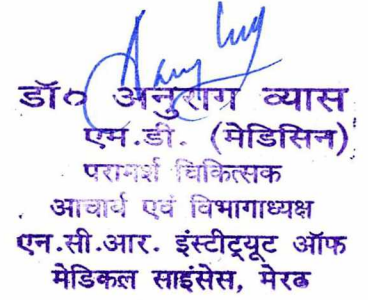 डॉ० अनुराग व्यास
एम.डी. (मेडिसिन)
परामर्श चिकित्सक
आचार्य एवं विभागाध्यक्ष
एन.सी.आर. इंस्टीट्यूट ऑफ
मेडिकल साइंसेस, मेरठ